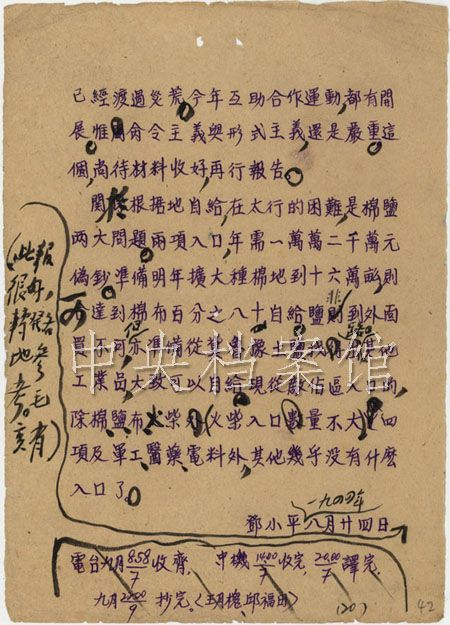 已經渡過災荒今年互助合作運動,都有開
展惟命令主義與形式主義,還是嚴重這
個,尚待材料收好再行報告。
關於根据地自給,在太行的困難是棉鹽
兩大問題兩項入口,年需一萬萬二千萬元
偽鈔準備明年擴大種棉地到十六萬畝則
可達到棉布百分之八十自給鹽則非到外面
工業品,大致可以自給現從敵佔區入口的,
除棉鹽布火柴外火柴入口數量不大四
項及軍工醫藥電料外,其他幾乎沒有什麽
入口了。
一九四四年
鄧小平八月廿四日
(此報
很好,
轉各
地參
考。毛
有)
電台九月8.58/7收齊,
中機14.00/7收完,20.00/7譯完.
九月20.00/9抄完.
(20)
42
中央档案馆